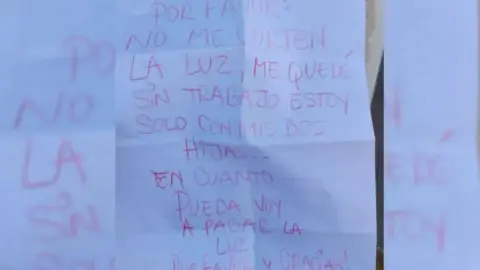 POR FAVOR
NO ME CORTEN
LA LUZ, ME QUEDÉ
SIN TRABAJO, ESTOY
SOLO CON MIS DOS
HIJAS..
EN CUANTO
PUEDA VOY
A PAGAR LA
LUZ
POR FAVOR Y GRACIAS!